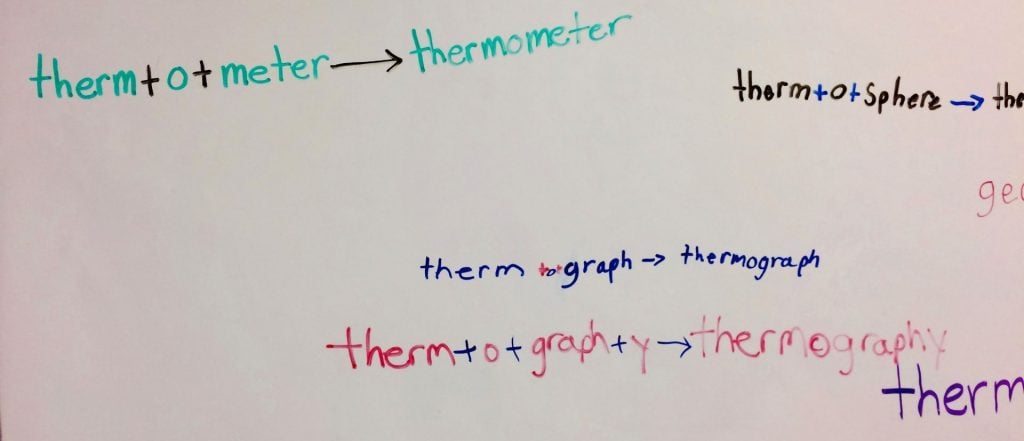 therm + o + meter → thermometer
therm + o + sphere → the
geo
therm + o + graph → thermograph
therm + o + graph + y → thermography
therm